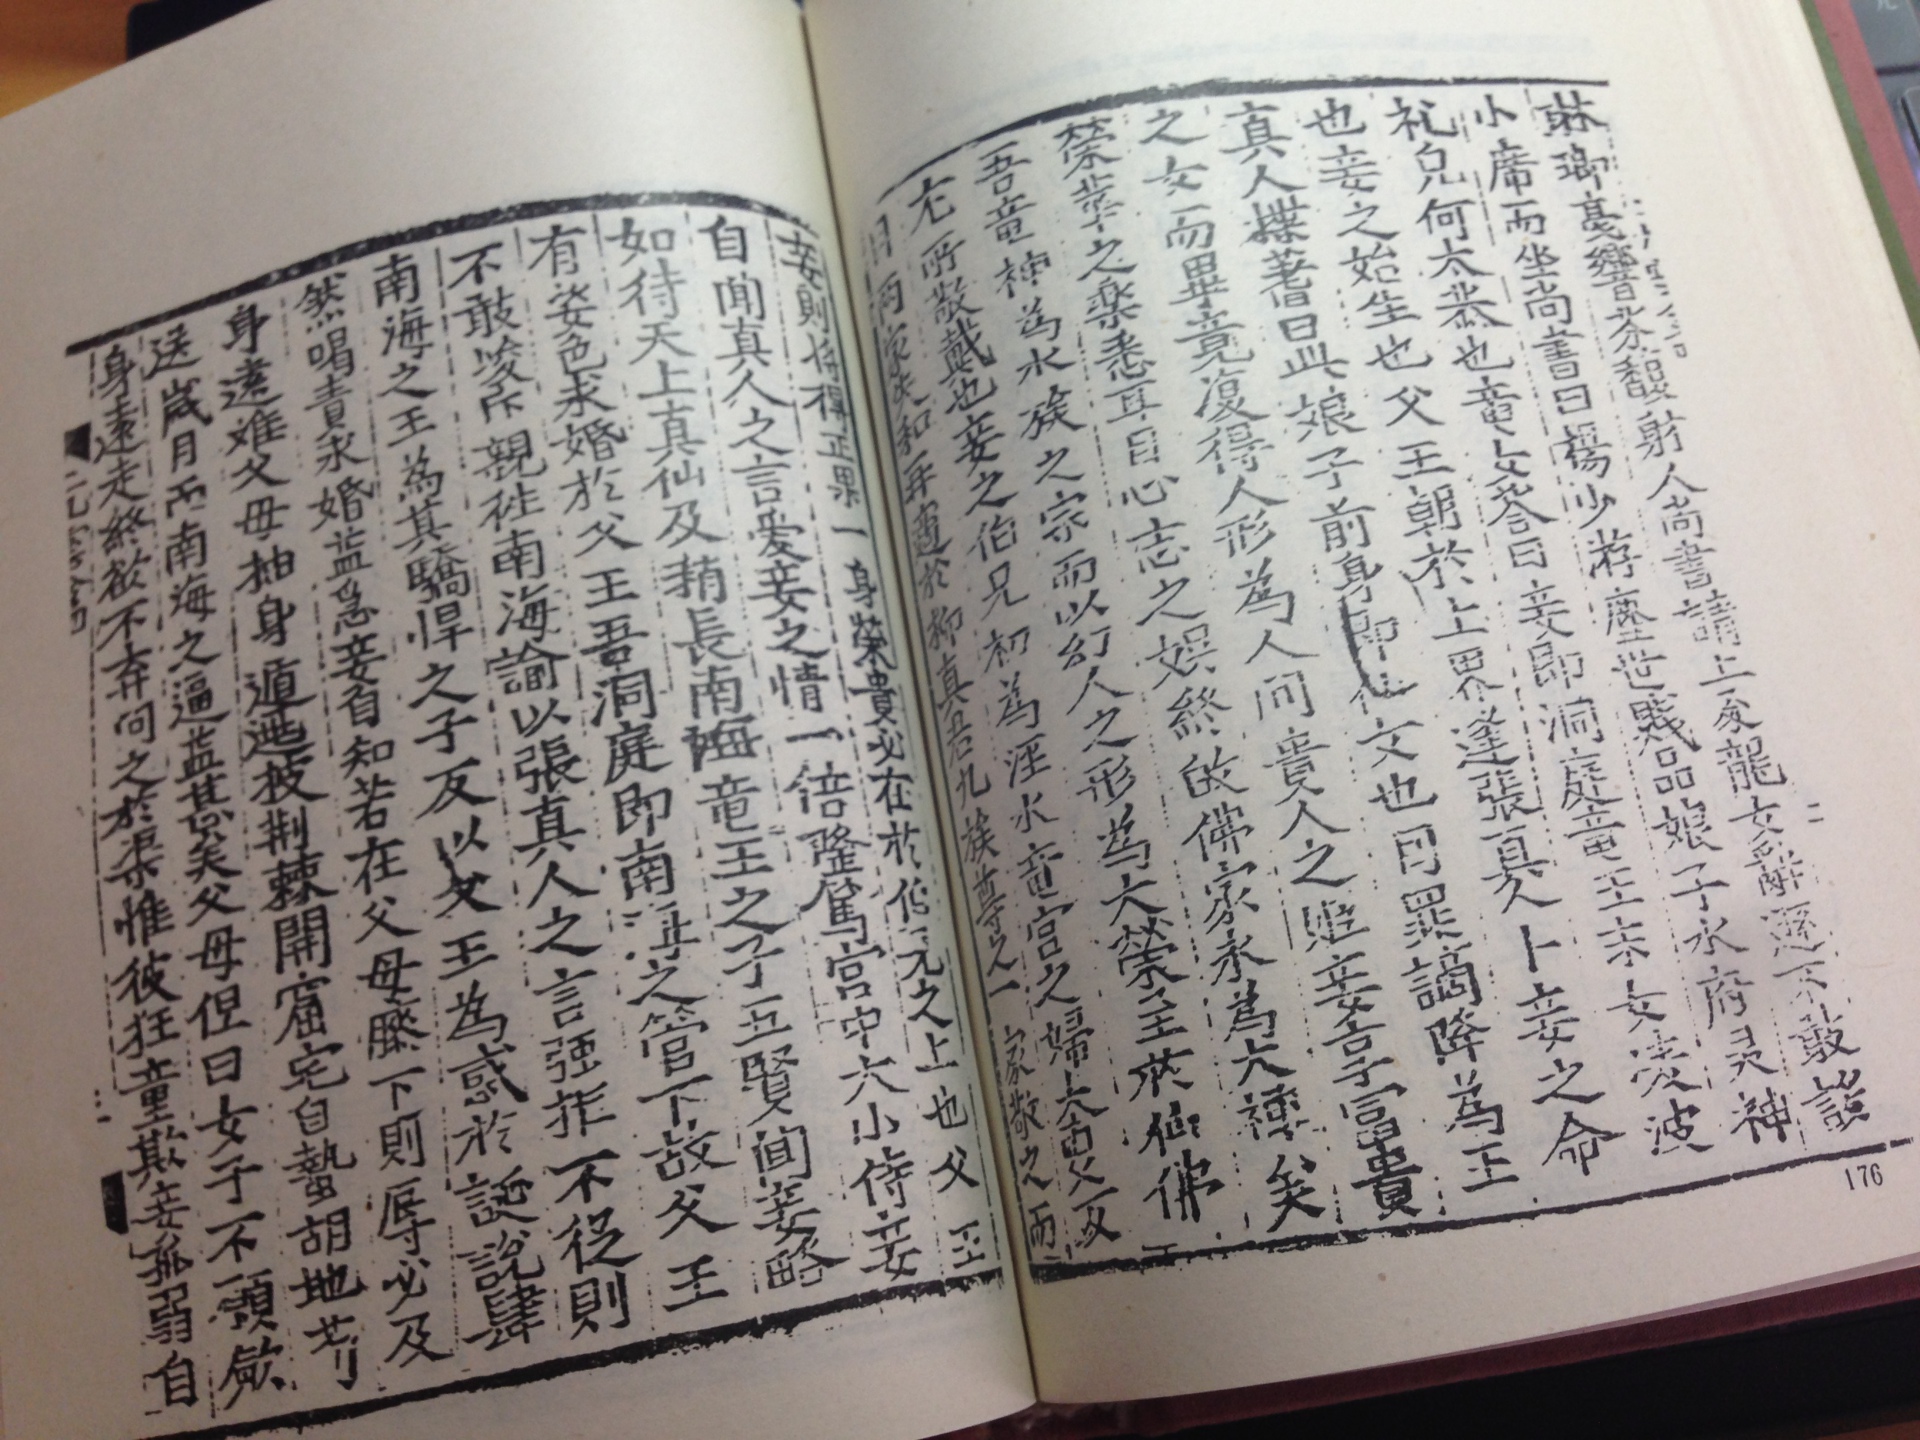 琳瑯憂響苾馥射人尚書請上交龍女辭遜不敢談
小席而坐尚書曰楊少游塵世賤品娘子水府灵神
礼皃何太恭也竜女答曰妾即洞庭竜王末女凌波
也妾之始生也父王朝於上界逢張真人卜妾之命
真人揲蓍曰此娘子前身即仙女也因罪謫降為王
之女而畢竟復得人形為人間貴人之姬妾享富貴
榮華之楽悉耳目心志之娯終故佛家永為大禪矣
吾竜神為水族之宗而以幻人之形為大榮至於仙佛
尤所敬戴也妾之伯兄初為涇水竜宮之婦夫妻反
目兩家失和再適於柳真君九族尊之一家敬之而
妾則将得正果一身榮貴必在於伯兄之上也父王
自聞真人之言愛妾之情一倍隆篤宮中大小侍妾
如待天上真仙及稍長南海竜王之子五賢聞妾略
有姿色求婚於父王吾洞庭即南海之管下故父王
不敢峻斥親徃南海諭以張真人之言強拒不從則
南海之王為其驕悍之子反以父王為惑於誕說肆
然喝責求婚益急妾自知若在父母膝下則辱必及
身遠难父母抽身遁逃披荆棘開窟宅自蟄胡地苟
送歲月而南海之逼益甚矣父母但曰女子不願欲
身遠走終欲不弃问之於渠惟彼狂童欺妾孤弱自
176